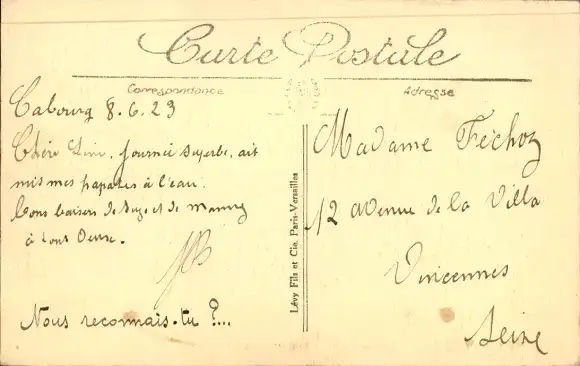 Carte Postale
Correspondance
Adresse
Cabourg 8.6.23
Chère Linie, Journée superbe, ait
mis mes papattes à l'eau.
Bons baisers de et de
à tout Deux.
Nous reconnais-tu ?...
Lévy Fils et Cie, Paris-Versailles
Madame Féchoz
12 avenue de la Villa
Vincennes
Seine